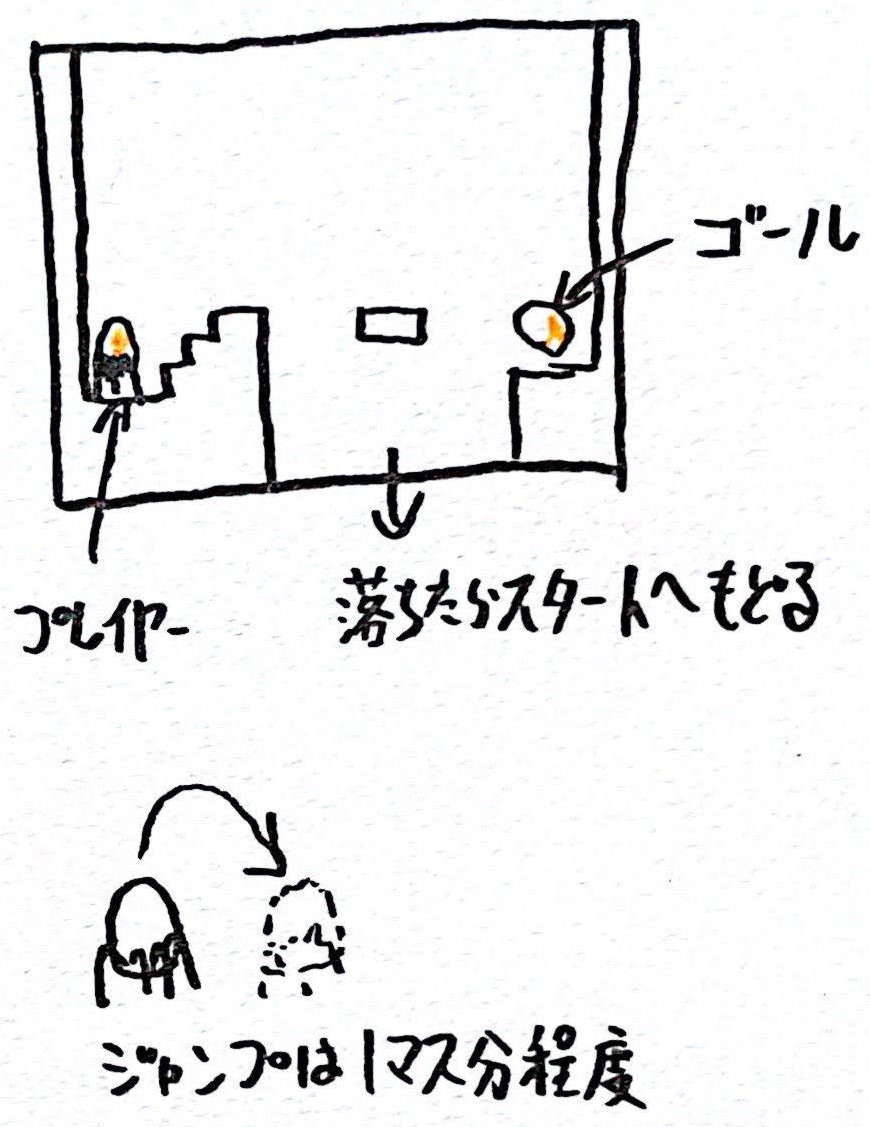 ゴール
プレイヤー
落ちたらスタートへもどる
ジャンプは1マス分程度